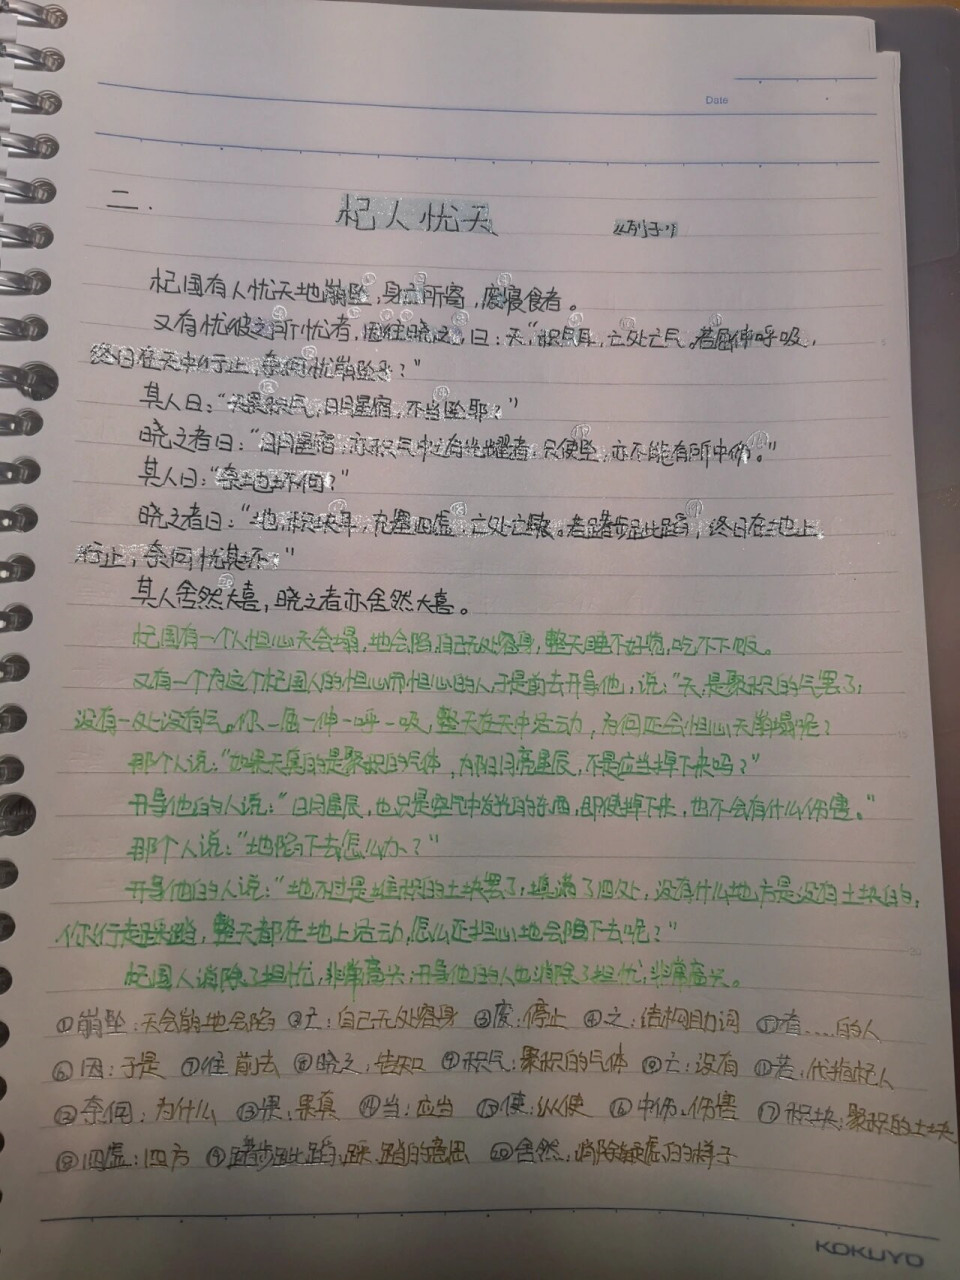 Date
二.
杞人忧天 《列子》
杞国有人忧天地崩坠,身亡所寄,废寝食者。
又有忧彼之所忧者,因往晓之,曰:天“积气耳,亡处亡气。若屈伸呼吸,
终日在天中行止,奈何忧崩坠乎?”
其人曰:“天果积气,日月星宿,不当坠耶?”
晓之者曰:“日月星宿,亦积气中之有光耀者,只使坠,亦不能有所中伤。”
其人曰:“奈地坏何?”
晓之者曰:“地,积块耳,充塞四虚,亡处亡块。若躇步跐蹈,终日在地上
行止,奈何忧其坏。”
其人舍然大喜,晓之者亦舍然大喜。
杞国有一个人担心天会塌,地会陷,自己无处容身,整天睡不好觉,吃不下饭。
又有一个为这个杞国人的担心而担心的人,于是前去开导他,说:“天,是聚积的气罢了,
没有一处没有气。你一屈一伸一呼一吸,整天在天中活动,为何还会担心天崩塌呢?
那个人说:“如果天真的是聚积的气体,那日月亮星辰,不是应当掉下来吗?”
开导他的人说:“日月星辰,也只是空气中发光的东西,即使掉下来,也不会有什么伤害。”
那个人说:“地陷下去怎么办?”
开导他的人说:“地不过是堆积的土块罢了,填满了四处,没有什么地方是没有土块的,
你行走踩踏,整天都在地上活动,怎么还担心地会陷下去呢?”
杞国人消除了担忧,非常高兴,开导他的人也消除了担忧,非常高兴。
①崩坠:天会崩地会陷 ②亡:自己无处容身 ③废:停止 ④之:结构助词 ⑤有……的人
⑥因:于是 ⑦往 前去 ⑧晓之:告知 ⑨积气:聚积的气体 ⑩亡:没有 ⑪若:代指杞人
⑫奈何:为什么 ⑬果:果真 ⑭当:应当 ⑮使:纵使 ⑯中伤:伤害 ⑰积块:聚积的土块
⑱四虚:四方 ⑲躇步跐蹈:踩、踏的意思 ⑳舍然:消除疑虑的样子
KOKUYO